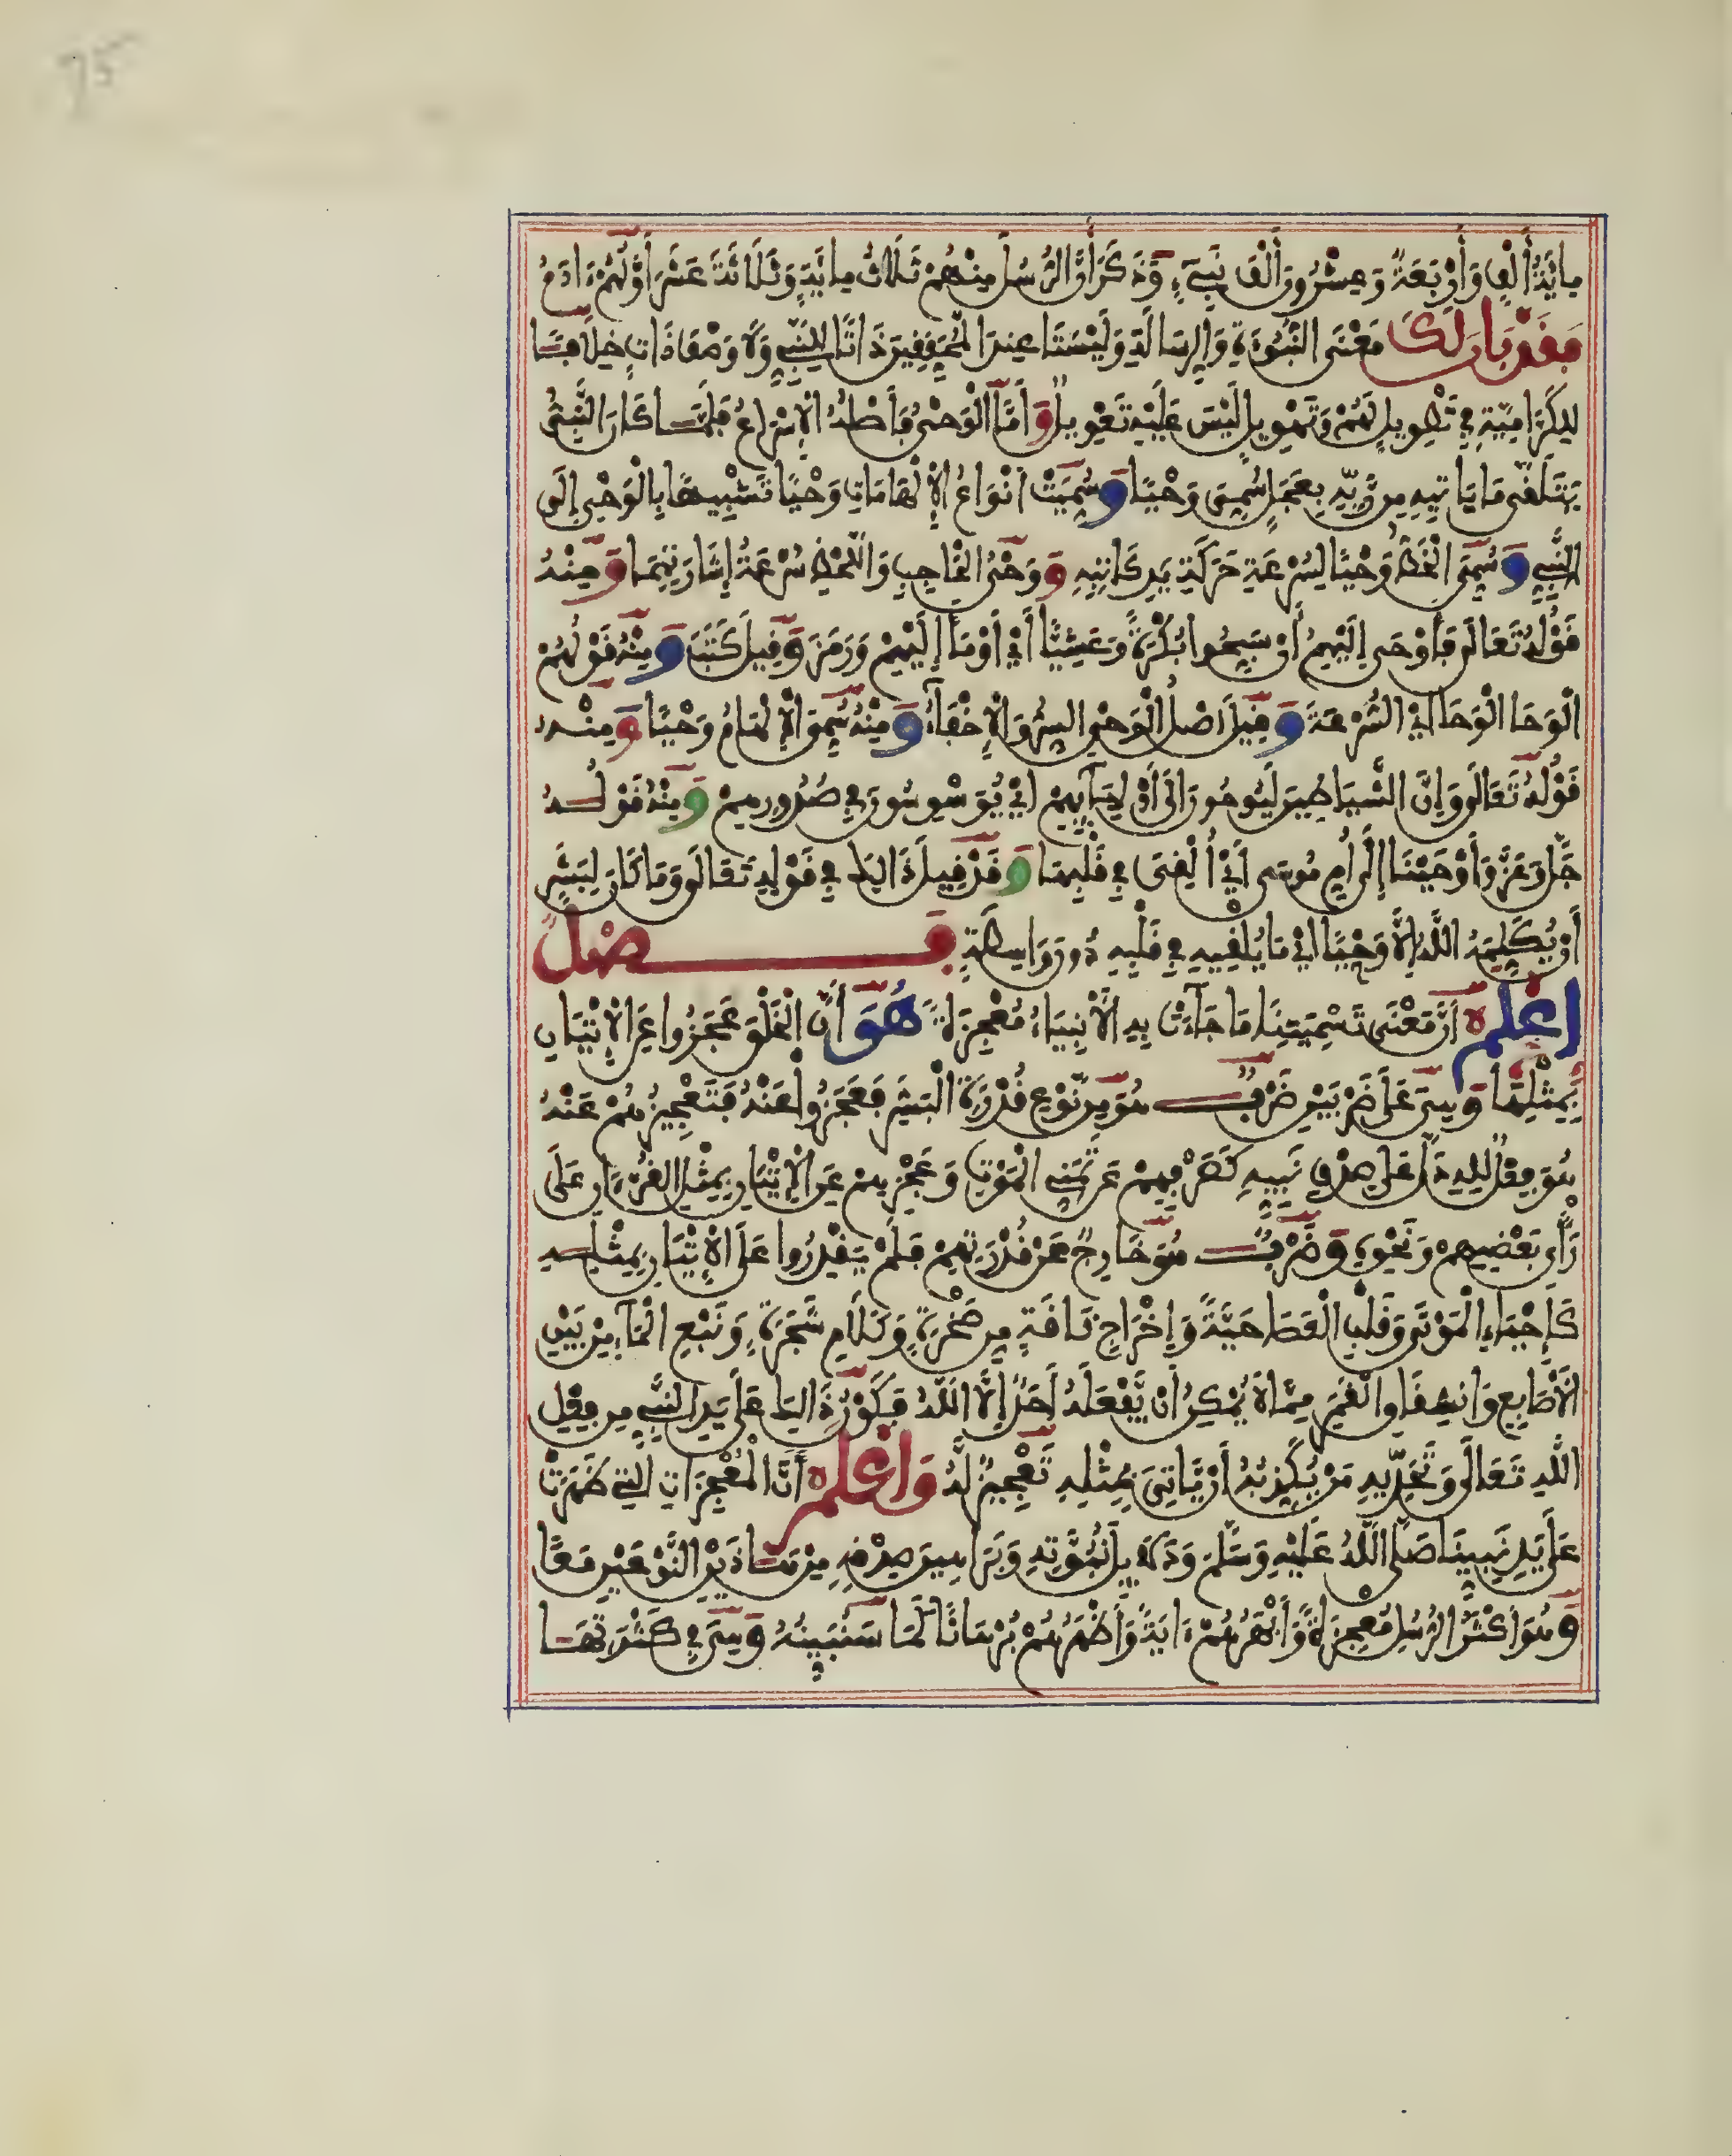 75
مِائَةُ أَلْفٍ وَأَرْبَعَةٌ وَعِشْرُونَ أَلْفَ نَبِيٍّ وَذَكَرَ أَنَّ الرُّسُلَ مِنْهُمْ ثَلَاثُ مِائَةٍ وَثَلَاثَةَ عَشَرَ أَوَّلُهُمْ ءَادَمُ
فَقَدْ بَانَ لَكَ مَعْنَى النُّبُوءَةِ وَالرِّسَالَةِ وَلَيْسَتَا عِندَ الْمُحَقِّقِينَ ذَاتًا لِلنَّبِيِّ وَلَا وَصْفَ ذَاتٍ خِلَافًا
لِلْكَرَّامِيَّةِ فِي تَطْوِيلٍ لَهُمْ وَتَهْوِيلٍ لَيْسَ عَلَيْهِ تَعْوِيلٌ وَأَمَّا الْوَحْيُ فَأَصْلُهُ الْإِسْرَاعُ فَلَمَّا كَانَ النَّبِيُّ
يَتَلَقَّى مَا يَاتِيهِ مِن رَّبِّهِ بِعَجَلٍ سُمِّيَ وَحْيًا وَسُمِّيَتْ أَنْوَاعُ الْإِلْهَامَاتِ وَحْيًا تَشْبِيهًا بِالْوَحْيِ إِلَى
النَّبِيِّ وَسُمِّيَ الْخَطُّ وَحْيًا لِسُرْعَةِ حَرَكَةِ يَدِ كَاتِبِهِ وَوَحْيُ الْحَاجِبِ وَاللَّحْظِ سُرْعَةُ إِشَارَتِهِمَا وَمِنْهُ
قَوْلُهُ تَعَالَى فَأَوْحَى إِلَيْهِمُ أَن سَبِّحُوا بُكْرَةً وَعَشِيًّا أَيْ أَوْمَأَ إِلَيْهِمْ وَرَمَزَ وَقِيلَ كَتَبَ وَمِنْهُ قَوْلُهُمْ
الْوَحَا الْوَحَا أَيِ السُّرْعَةَ وَقِيلَ أَصْلُ الْوَحْيِ السِّرُّ وَالْإِخْفَاءُ وَمِنْهُ سُمِّيَ الْإِلْهَامُ وَحْيًا وَمِنْهُ
قَوْلُهُ تَعَالَى وَإِنَّ الشَّيَاطِينَ لَيُوحُونَ إِلَى أَوْلِيَائِهِمْ أَيْ يُوَسْوِسُونَ فِي صُدُورِهِمْ وَمِنْهُ قَوْلُهُ
جَلَّ وَعَزَّ وَأَوْحَيْنَا إِلَى أُمِّ مُوسَى أَيْ أُلْقِيَ فِي قَلْبِهَا وَقَدْ قِيلَ ذَالِكَ فِي قَوْلِهِ تَعَالَى وَمَا كَانَ لِبَشَرٍ
أَن يُكَلِّمَهُ اللَّهُ إِلَّا وَحْيًا أَيْ مَا يُلْقِيهِ فِي قَلْبِهِ دُونَ وَاسِطَةٍ فَصْلٌ
اعْلَمْ أَنَّ مَعْنَى تَسْمِيَتِنَا مَا جَاءَتْ بِهِ الْأَنْبِيَاءُ مُعْجِزَةً هُوَ أَنَّ الْخَلْقَ عَجَزُوا عَنِ الْإِتْيَانِ
بِمِثْلِهَا وَهِيَ عَلَى ضَرْبَيْنِ ضَرْبٌ هُوَ مِن نَّوْعِ قُدْرَةِ الْبَشَرِ فَعَجَزُوا عَنْهُ فَتَعْجِيزُهُمْ عَنْهُ
هُوَ فِعْلٌ لِلَّهِ دَلَّ عَلَى صِدْقِ نَبِيِّهِ كَصَرْفِهِمْ عَن تَمَنِّي الْمَوْتِ وَعَجْزِهِمْ عَنِ الْإِتْيَانِ بِمِثْلِ الْقُرْءَانِ عَلَى
رَأْيِ بَعْضِهِمْ وَنَحْوِهِ وَضَرْبٌ هُوَ خَارِجٌ عَنْ قُدْرَتِهِمْ فَلَمْ يَقْدِرُوا عَلَى الْإِتْيَانِ بِمِثْلِهِ
كَإِحْيَاءِ الْمَوْتَى وَقَلْبِ الْعَصَا حَيَّةً وَإِخْرَاجِ نَاقَةٍ مِن صَخْرَةٍ وَكَلَامِ شَجَرَةٍ وَنَبْعِ الْمَاءِ مِنْ بَيْنِ
الْأَصَابِعِ وَانشِقَاقِ الْقَمَرِ مِمَّا لَا يُمْكِنُ أَن يَّفْعَلَهُ أَحَدٌ إِلَّا اللَّهُ فَكَوْنُ ذَالِكَ عَلَى يَدِ النَّبِيِّ مِن فِعْلِ
اللَّهِ تَعَالَى وَتَحَدِّيهِ مَنْ يُكَذِّبُهُ أَنْ يَّاتِيَ بِمِثْلِهِ تَعْجِيزٌ لَّهُ وَاعْلَمْ أَنَّ الْمُعْجِزَاتِ الَّتِي ظَهَرَتْ
عَلَى يَدِ نَبِيِّنَا صَلَّى اللَّهُ عَلَيْهِ وَسَلَّمَ وَدَلَائِلَ نُبُوَّتِهِ وَبَرَاهِينَ صِدْقِهِ مِنْ هَاذَيْنِ النَّوْعَيْنِ مَعًا
وَهُوَ أَكْثَرُ الرُّسُلِ مُعْجِزَةً وَأَبْهَرُهُمْ ءَايَةً وَأَظْهَرُهُمْ بُرْهَانًا كَمَا سَنُبَيِّنُهُ وَهِيَ فِي كَثْرَتِهَا